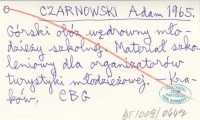 CZARNOWSKI Adam 1965.
Górski obóz wędrowny mło-
dzieży szkolnej. Materiał szko-
leniowy dla organizatorów
turystyki młodzieżowej. - Kra-
ków, CBG